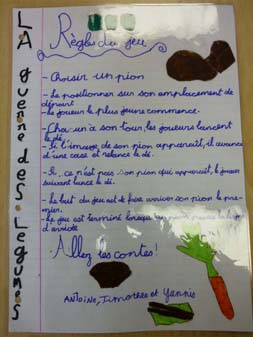 LA guerre des Légumes
Règles du jeu
- Choisir un pion
- Le positionner sur son emplacement de
départ
- Le joueur le plus jeune commence.
- Chacun à son tour, les joueurs lancent
le dé.
- Si l'image de son pion apparaît, il avance
d'une case et relance le dé.
- Si ce n'est pas son pion qui apparaît, le joueur
suivant lance le dé.
- Le but du jeu est de faire arriver son pion le pre-
mier.
- Le jeu est terminé lorsque
d'arrivée
Allez les contes!
Antoine, Timothée et Yannis